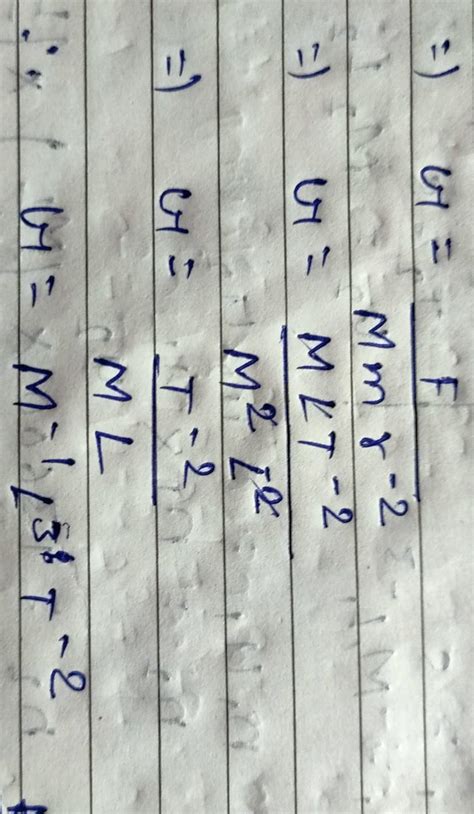 =) G = F / M m r^-2
=) G = M L T^-2 / M^2 L^2
=) G = T^-2 / M L
∴ G = M^-1 L^3 T^-2